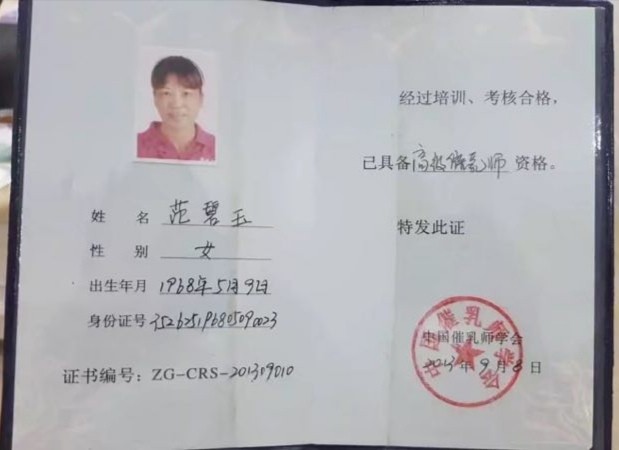 姓 名 范碧玉
性 别 女
出生年月 1968年5月9日
身份证号 352625196805090023
证书编号：ZG-CRS-201309010
经过培训、考核合格，
已具备高级催乳师资格。
特发此证
中国催乳师学会
2013年9月8日
中国催乳师学会